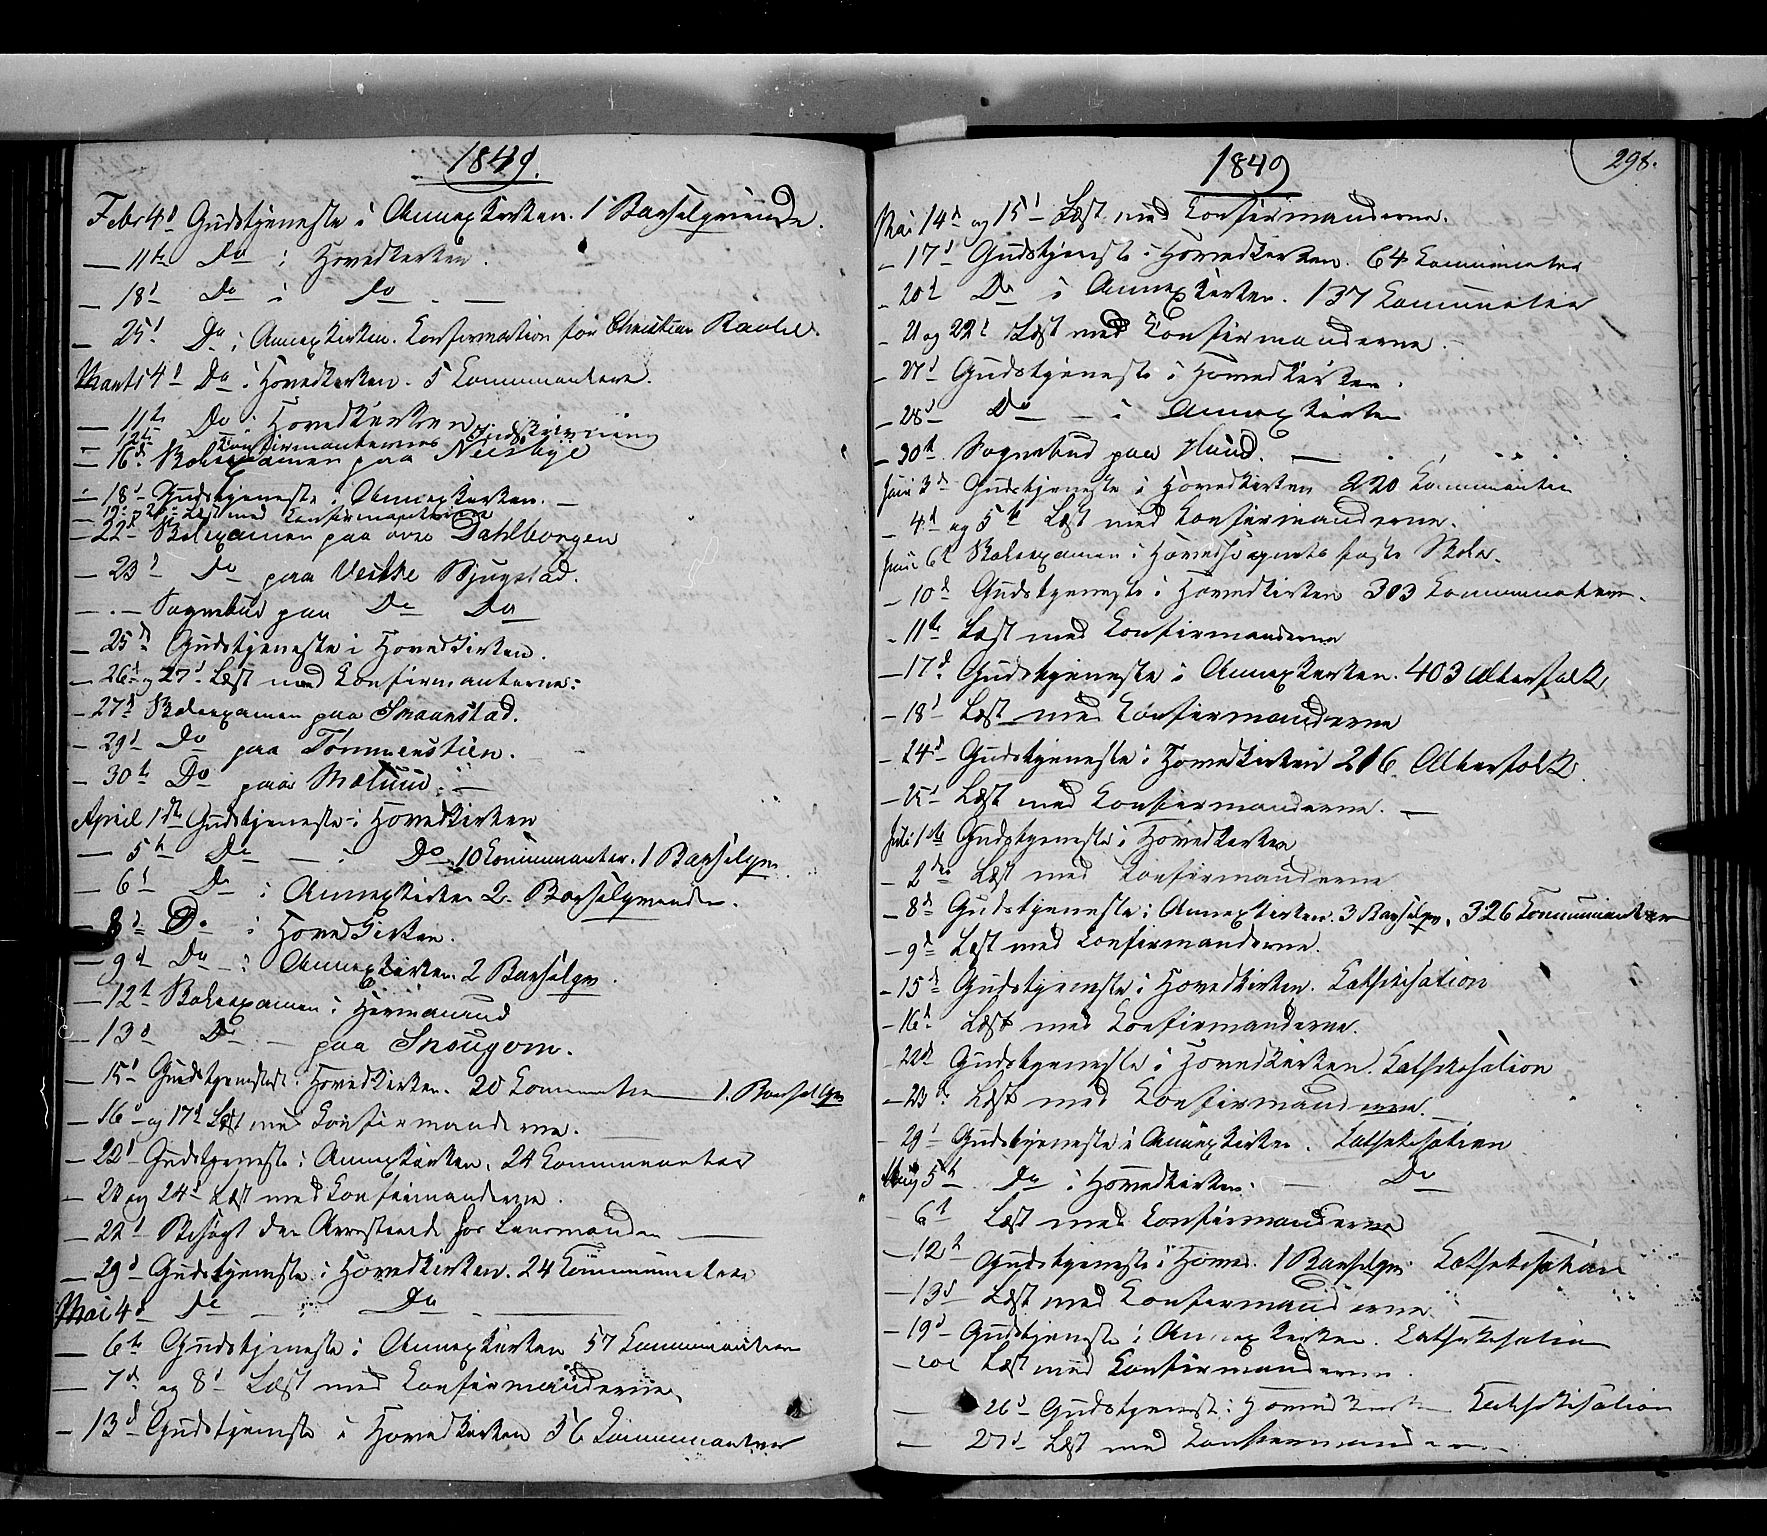 1849.
Febr 4d Gudstjeneste i Annexkirken. 1 Barselqvinde.
— 11te Do i Hovedkirken.
— 18d Do i Do —
— 25d Do i Annexkirken. Confirmation for Christian
Marts 4d Do i Hovedkirken. 5 Communicantere.
— 11te Do i Hovedkirken
— 12te Confirmanternes Indskrivning
— 16d Skoleexamen paa
— 18d Gudstjeneste i Annexkirken. —
— 19d og 20d Læst med Confirmanterne
— 22d Skolexamen paa øvre Dahlborgen
— 23d Do paa Vestre Bjugstad.
— . — Sognebud paa Do Do
— 25de Gudstjeneste i Hovedkirken.
— 26d og 27d Læst med Confirmanterne.
— 27d Skoleexamen paa Snaarstad.
— 29d Do paa Tømmerstien.
— 30te Do paa
April 1ste Gudstjeneste i Hovedkirken
— 5te Do — i Do 10 Communicanter. 1 Barselqv.
— 6d Do i Annexkirken 2 Barselqvinder.
— 8d Do i Hovedkirken.
— 9d Do — i Annexkirken. 2 Barselqv.
— 12te Skoleexamen i
— 13d Do — paa
— 15d Gudstjeneste i Hovedkirken. 20 Communicanter — 1. Barselqv
— 16d og 17d Læst med Confirmanderne.
— 22d Gudstjeneste i Annexkirken. 24 Communicanter
— 23 og 24d Læst med Confirmanderne.
— 22d Besøgt den Arresterede hos Lensmanden —
— 29d Gudstjeneste i Hovedkirken. 24 Communicantere
Mai 4d Do — i Do —
— 6te Gudstjeneste i Annexkirken 57 Communicantere
— 7d og 8d Læst med Confirmanderne.
— 13d Gudstjeneste i Hovedkirken 56 Communicanter
1849
298.
Mai 14d og 15d Læst med Confirmanderne.
— 17d Gudstjeneste i Hovedkirken. 64 Communicanter
— 20d Do i Annexkirken. 137 Communicanter
— 21 og 22d Læst med Confirmanderne. —
— 27d Gudstjeneste i Hovedkirken.
— 28d Do — i Annexkirken
— 30te Sognebud paa —
Juni 3d Gudstjeneste i Hovedkirken 220 Communicanter
— 4d og 5te Læst med Confirmanderne.
Juni 6te Skoleexamen i Hovedsognets faste Skole.
— 10d Gudstjeneste i Hovedkirken 303 Communicantere.
— 11te Læst med Confirmanderne
— 17d Gudstjeneste i Annexkirken. 403 Altersfolk
— 18d Læst med Confirmanderne
— 24d Gudstjeneste i Hovedkirken 216 Altersfolk
— 25d Læst med Confirmanderne. —
Juli 1ste Gudstjeneste i Hovedkirken
— 2den Læst med Confirmanderne
— 8d Gudstjeneste i Annexkirken. 3 Barselqv. 326 Communicanter
— 9d Læst med Confirmanderne.
— 15d Gudstjeneste i Hovedkirken. Cathekisation
— 16d Læst med Confirmanderne.
— 22d Gudstjeneste i Hovedkirken. Cathekisation
— 23d Læst med Confirmanderne. —
— 29d Gudstjeneste i Annexkirken. Cathekisation
Aug 5te Do i Hovedkirken. — Do
— 6te Læst med Confirmanderne
— 12te Gudstjeneste i Hoved. 1 Barselqv. Cathekisation
— 13d Læst med Confirmanderne. —
— 19d Gudstjeneste i Annexkirken. Cathekisation
— 20d Læst med Confirmanderne.
— 26d Gudstjeneste i Hovedkirken Cathekisation
— 27d Læst med Confirmanderne